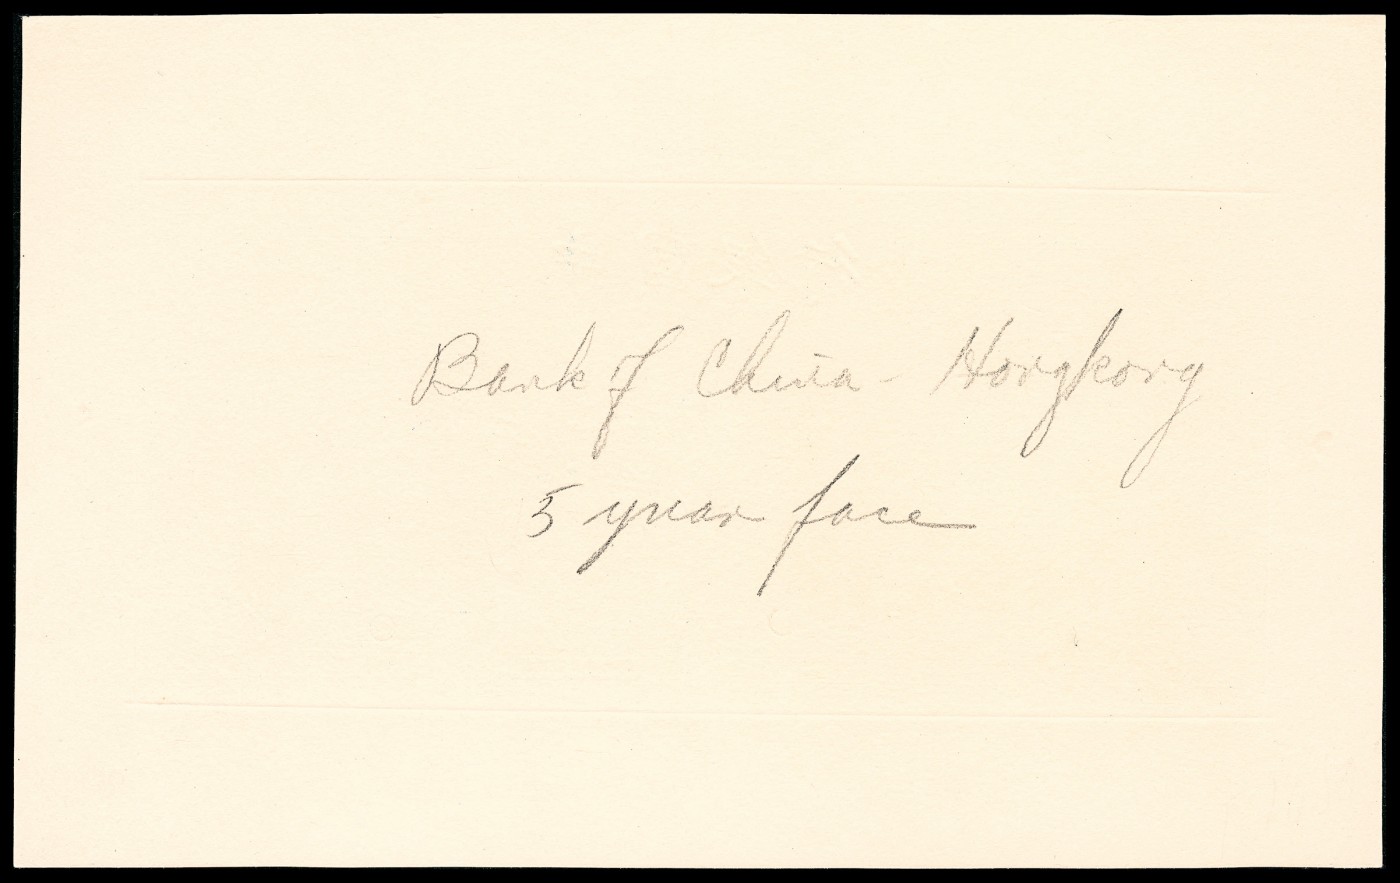 Bank of China - Hongkong
5 yuan face